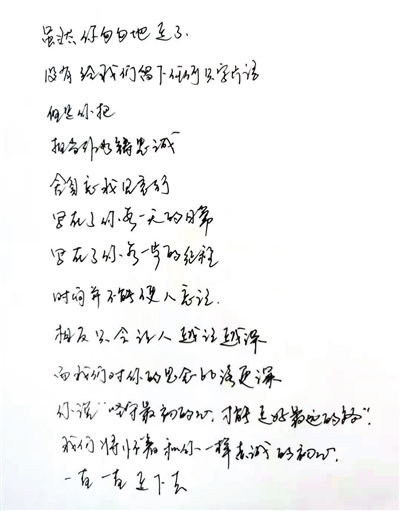 虽然你匆匆地走了
没有给我们留下任何只字片语
但是你把
担当外化铸忠诚
舍身忘我见言行
写在了你每一天的日常
写在了你每一步的征程
时间并不能使人忘记
相反只会让人越记越深
而我们对你的思念的话更深
你说"坚守最初的心,才能走好最远的路"。
我们将怀着和你一样真诚的初心,
一直一直走下去